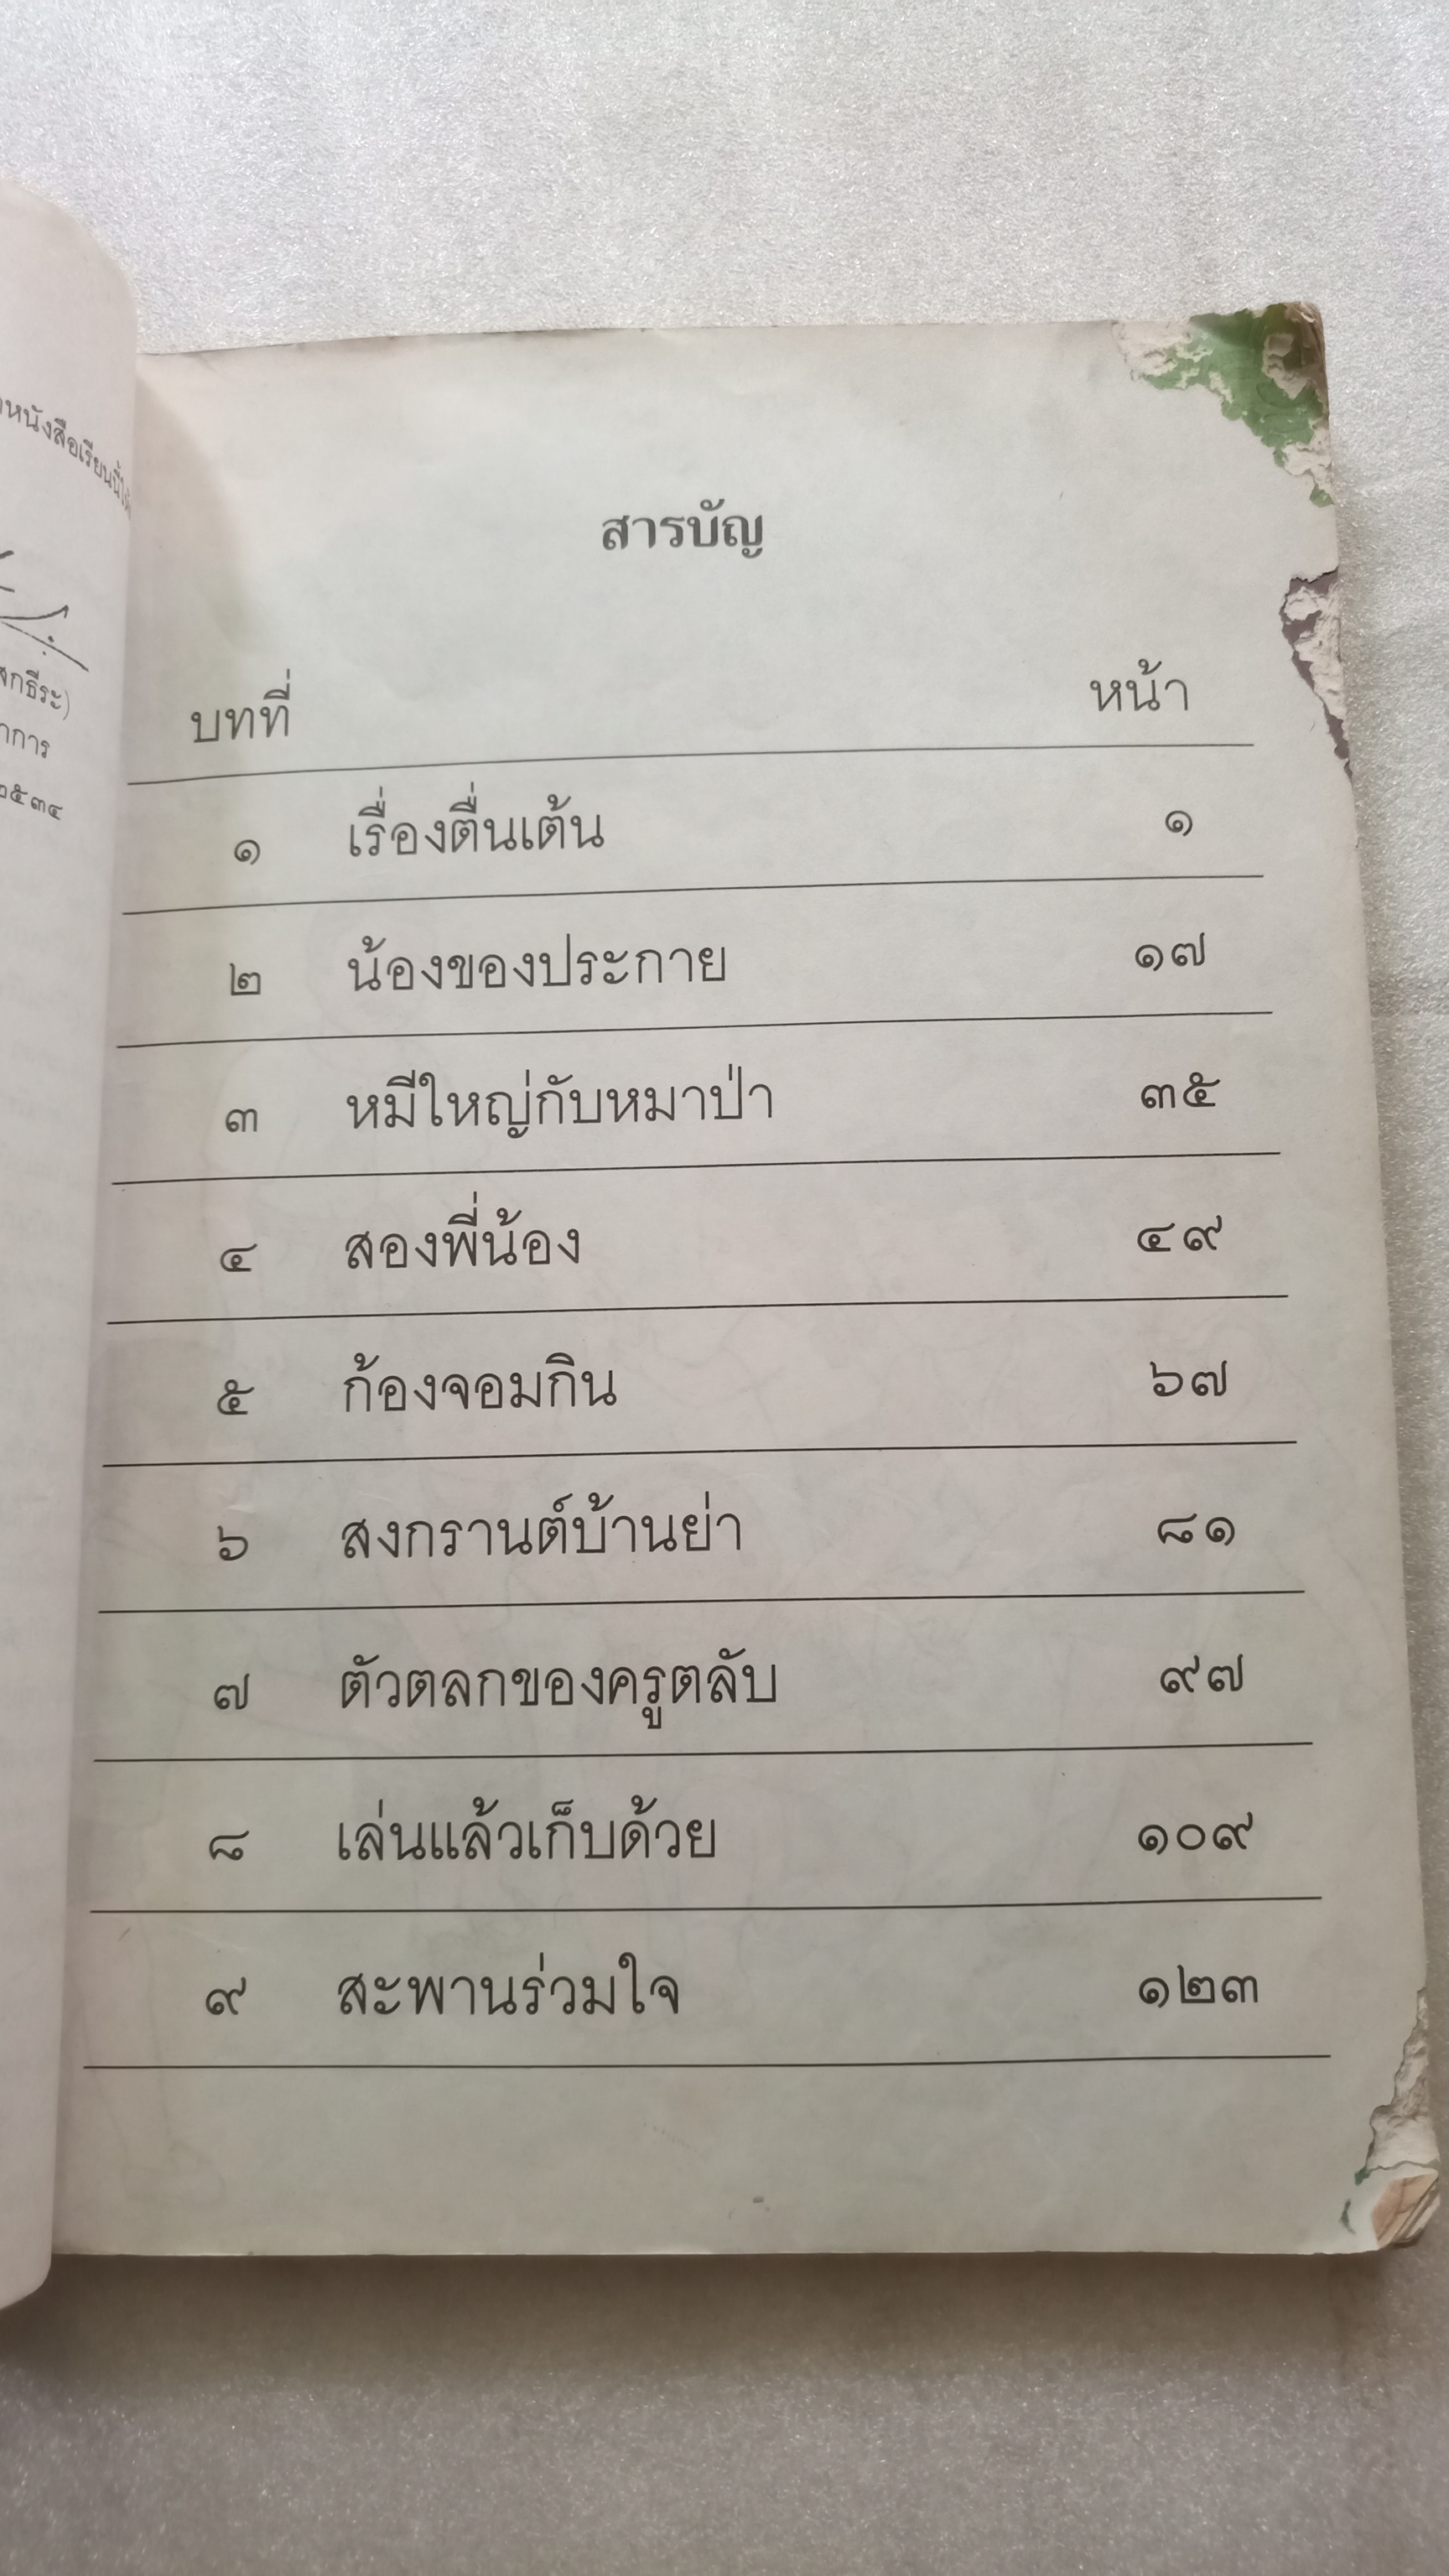 หนังสือเรียนนี้
สกธีระ)
าการ
๒๕๓๔
สารบัญ
บทที่ หน้า
๑ เรื่องตื่นเต้น ๑
๒ น้องของประกาย ๑๗
๓ หมีใหญ่กับหมาป่า ๓๕
๔ สองพี่น้อง ๔๙
๕ ก้องจอมกิน ๖๗
๖ สงกรานต์บ้านย่า ๘๑
๗ ตัวตลกของครูตลับ ๙๗
๘ เล่นแล้วเก็บด้วย ๑๐๙
๙ สะพานร่วมใจ ๑๒๓